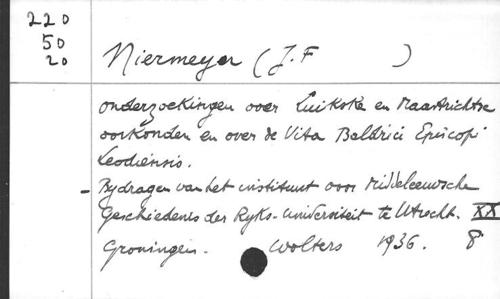 220
50
20
Niermeyer (J.F )
onderzoekingen over Luikske en Maastrichtse
oorkonden en over de Vita Baldrici Episcopi
Leodiensis.
- Bydragen van het instituut voor Middeleeuwsche
Geschiedenis der Ryks-Universiteit te Utrecht. XX
Groningen. Wolters 1936. 8